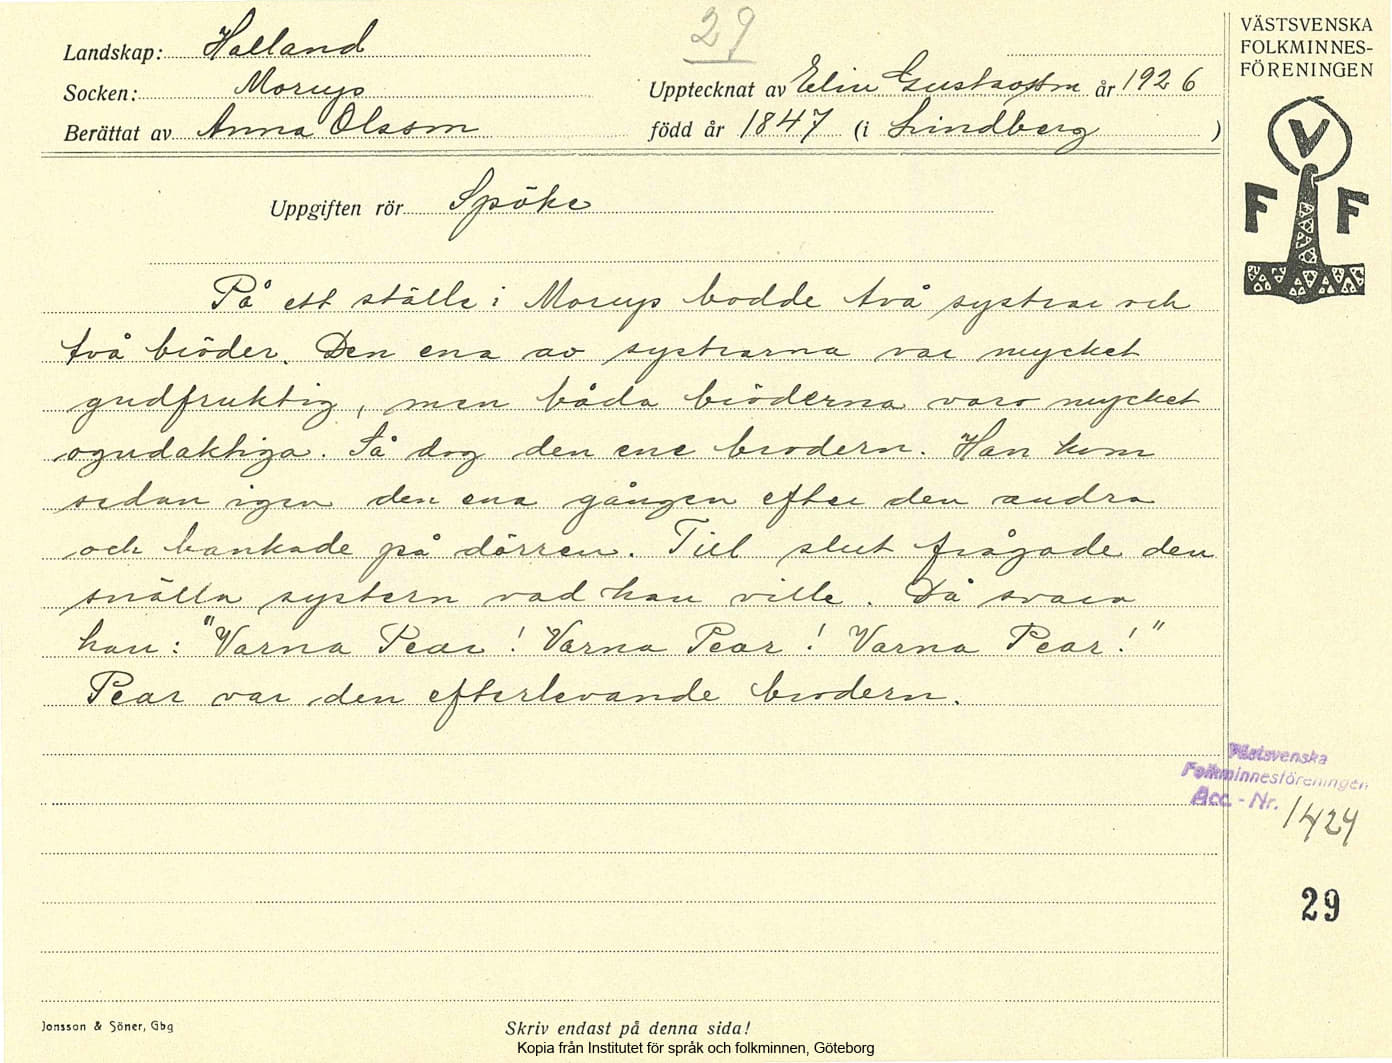 29
VÄSTSVENSKA
FOLKMINNES-
FÖRENINGEN
Landskap: Halland
Socken: Morups Upptecknat av Elin Gustafsson år 1926
Berättat av Anna Olsson född år 1847 (i Lindberg )
V
F F
Uppgiften rör Spöke
På ett ställe i Morups bodde två systrar och
två bröder. Den ena av systrarna var mycket
gudfruktig, men båda bröderna voro mycket
ogudaktiga. Så dog den ene brodern. Han kom
sedan igen den ena gången efter den andra
och bankade på dörren. Till slut frågade den
snälla systern vad han ville. Då svara
han: "Varna Pear! Varna Pear! Varna Pear!"
Pear var den efterlevande brodern.
Västsvenska
Folkminnesföreningen
Acc. - Nr. 1424
29
Jonsson & Söner, Gbg
Skriv endast på denna sida!
Kopia från Institutet för språk och folkminnen, Göteborg